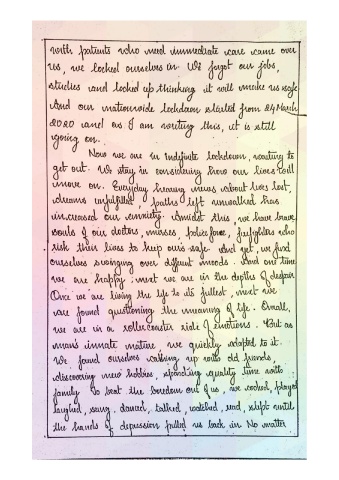 with patients who need immediate care came over
us, we locked ourselves in. We forgot our jobs,
studies and locked up thinking it will make us safe
And our nationwide lockdown started from 24 March
2020 and as I am writing this, it is still
going on.
Now we are in Indefinite lockdown, waiting to
get out. We stay in considering how our lives will
move on. Everyday hearing news about lives lost,
dreams unfulfilled, paths left unwalked has
increased our anxiety. Amidst this, we have brave
souls of our doctors, nurses, police force, firefighters who
risk their lives to keep ours safe. And yet, we find
ourselves swinging over different moods. And one time
we are happy, next we are in the depths of despair
Once we are living the life to its fullest, next we
are found questioning the meaning of life. Overall,
we are in a rollercoaster ride of emotions. But as
man's innate nature we quickly adapted to it.
We found ourselves catching up with old friends,
discovering new hobbies, spending quality time with
family. To beat the boredom out of us, we cooked, played
laughed, sang, danced, talked, watched, read, slept until
the hands of depression pulled us back in. No matter